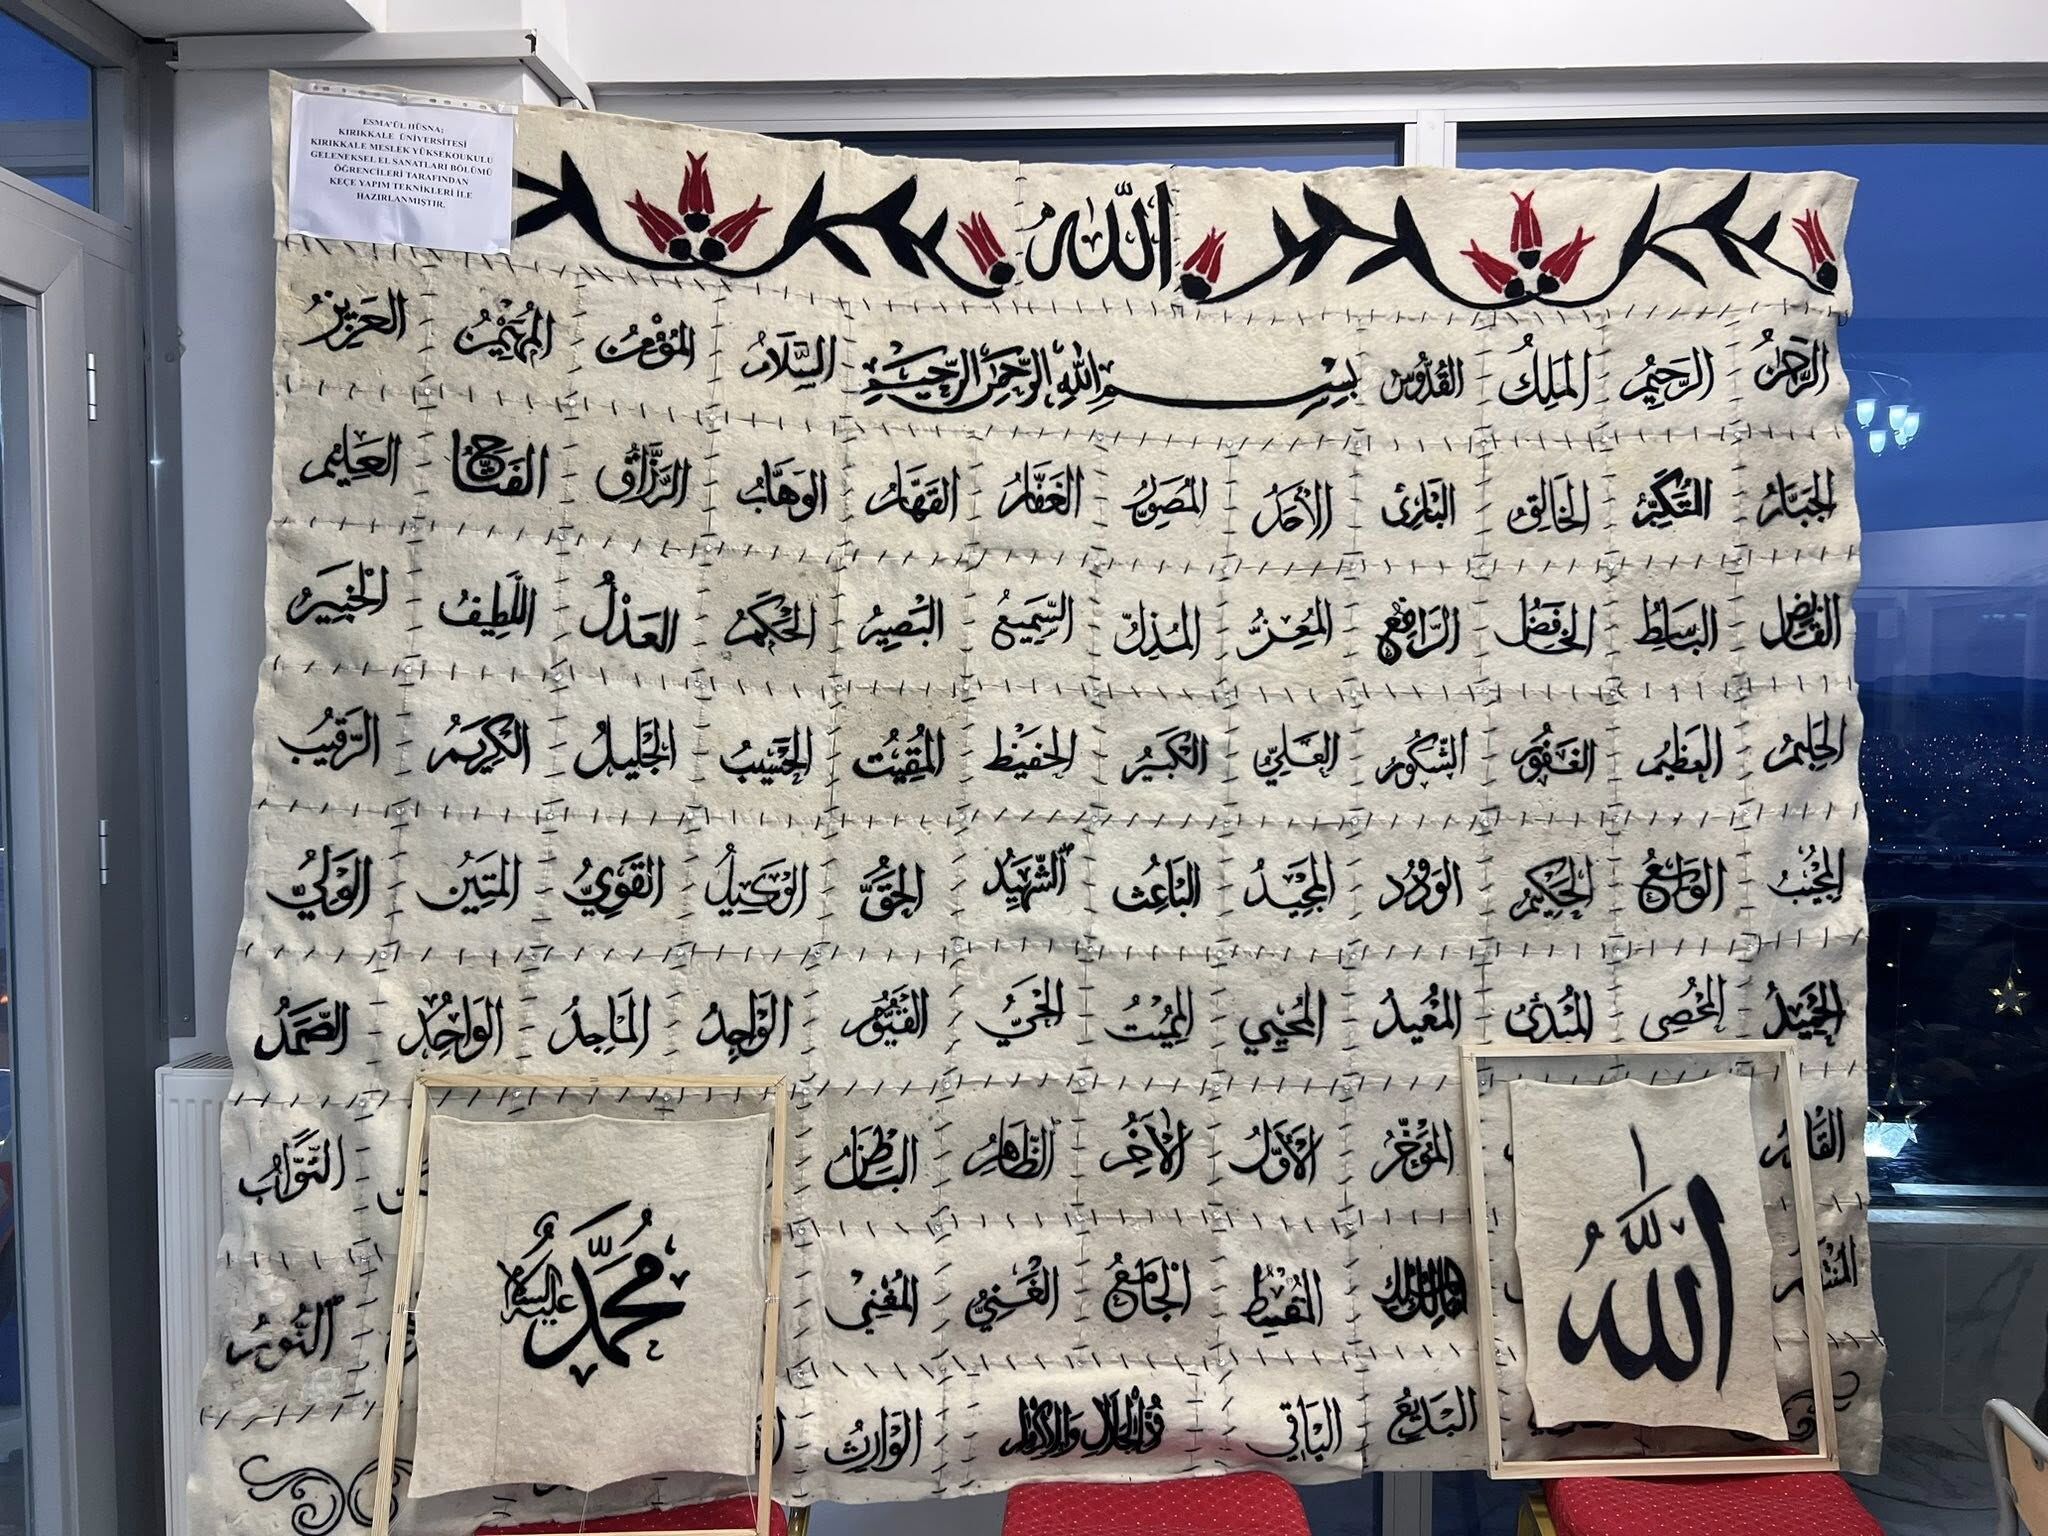 ESMA'ÜL HÜSNA;
KIRIKKALE ÜNİVERSİTESİ
KIRIKKALE MESLEK YÜKSEKOUKULU
GELENEKSEL EL SANATLARI BÖLÜMÜ
ÖĞRENCİLERİ TARAFINDAN
KEÇE YAPIM TEKNİKLERİ İLE
HAZIRLANMIŞTIR.
الله
الرَّحْمٰنُ الرَّحِيْمُ المَلِكُ القُدُّوسُ بِسْمِ اللهِ الرَّحْمٰنِ الرَّحِيْمِ السَّلَامُ المُؤْمِنُ المُهَيْمِنُ العَزِيزُ
الجَبَّارُ المُتَكَبِّرُ الخَالِقُ البَارِئُ الأَحَدُ المُصَوِّرُ الغَفَّارُ القَهَّارُ الوَهَّابُ الرَّزَّاقُ الفَتَّاحُ العَلِيْمُ
القَابِضُ البَاسِطُ الخَافِضُ الرَّافِعُ المُعِزُّ المُذِلُّ السَّمِيعُ البَصِيْرُ الحَكَمُ العَدْلُ اللَّطِيفُ الخَبِيرُ
الحَلِيمُ العَظِيمُ الغَفُورُ الشَّكُورُ العَلِيُّ الكَبِيْرُ الحَفِيْظُ المُقِيْتُ الحَسِيْبُ الجَلِيْلُ الكَرِيمُ الرَّقِيْبُ
المُجِيْبُ الوَاسِعُ الحَكِيْمُ الوَدُودُ المَجِيْدُ البَاعِثُ الشَّهِيْدُ الحَقُّ الوَكِيْلُ القَوِيُّ المَتِيْنُ الوَلِيُّ
الحَمِيْدُ المُحْصِي المُبْدِئُ المُعِيدُ المُحْيِي المُمِيْتُ الحَيُّ القَيُّوْمُ الوَاجِدُ المَاجِدُ الوَاحِدُ الصَّمَدُ
القَادِرُ المُؤَخِّرُ الأَوَّلُ الآخِرُ الظَّاهِرُ البَاطِنُ التَّوَّابُ
المُقْسِطُ الجَامِعُ الغَنِيُّ المُغْنِي النُّورُ
البَدِيْعُ البَاقِي الوَارِثُ
الله
مُحَمَّد
عليه السلام